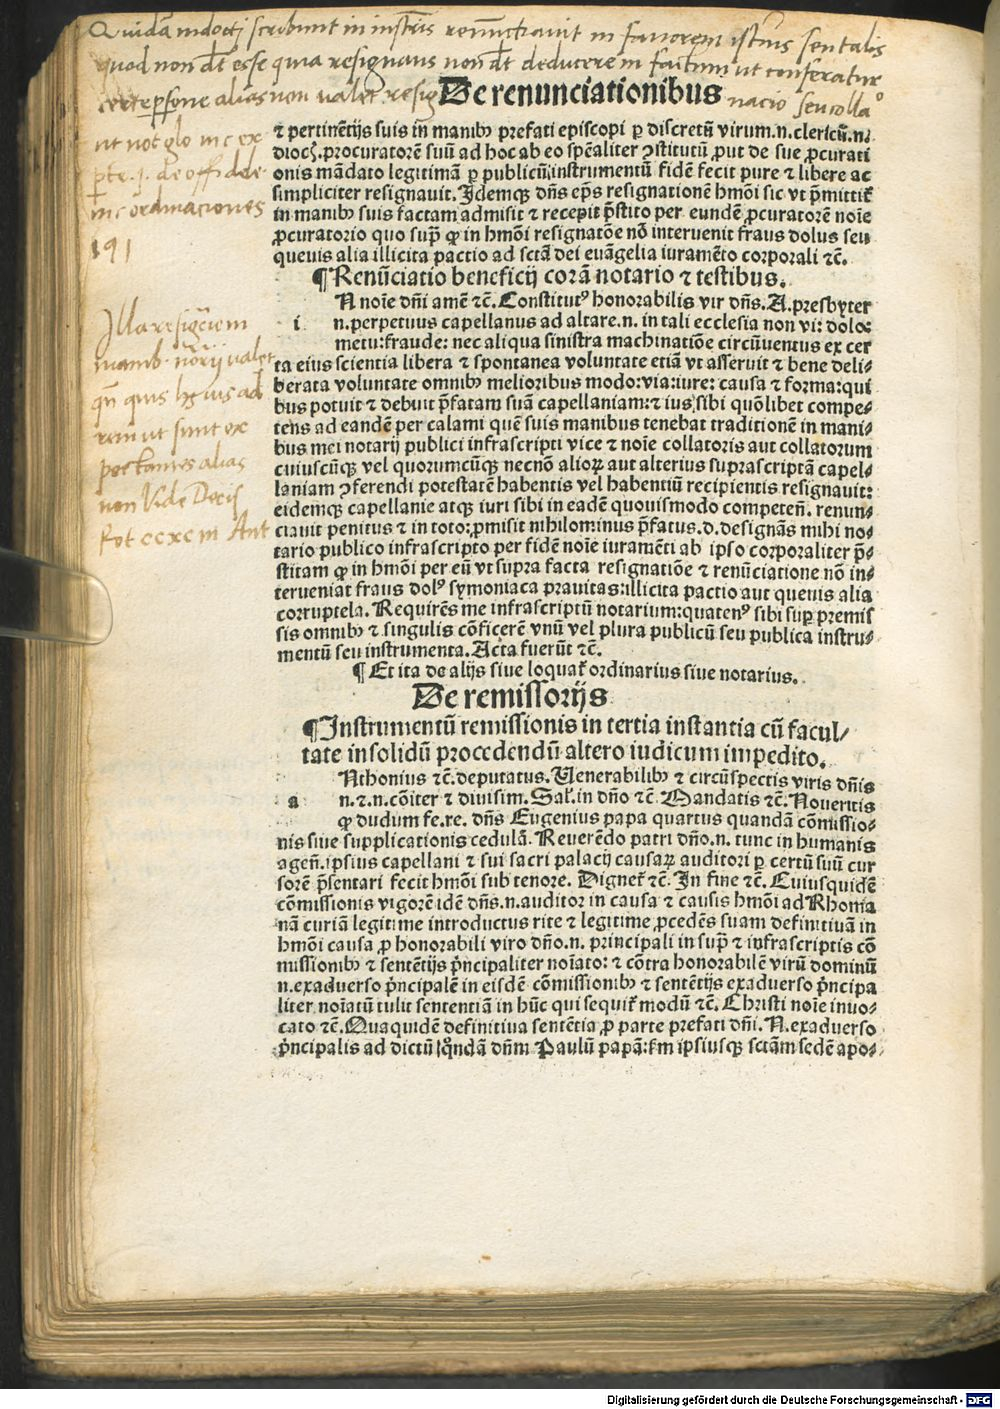 Quidam indocti scribunt in instr̃is renũctiauit in fauorem istius seu talis
quod non dt̃ esse quia resignans non dt̃ deducere in factum ut conferatur
certe p̱sone alias non valet resig
nacio seu colla°
ut not glo in c ex
p̱te .j. de offi dele
in c ordinaciones
191
Illa resigc̃iem
manib. nõrij valet
qñ quis hʒ ius ad
rem ut sunt ex
pectantes alias
non Vide Decis
Rot ccxc in Ant
De renunciationibus
⁊ pertinẽtijs suis in manibꝰ prefati episcopi ꝑ discretũ virum.n.clericũ.n.
dioc̃.procuratorẽ suũ ad hoc ab eo spẽaliter ꝯstitutũ ꝓut de sue ꝓcurati
onis mãdato legitimã ꝑ publicũ instrumentũ fidẽ fecit pure ⁊ libere ac
simpliciter resignauit. Idemqꝫ dñs ep̃s resignationẽ hmõi sic vt p̃mittit̃
in manibꝰ suis factam admisit ⁊ recepit p̃stito per eundẽ ꝓcuratorẽ noĩe
ꝓcuratorio quo sup̃ ꝙ in hmõi resignatõe nõ interuenit fraus dolus seu
queuis alia illicita pactio ad sctã dei euãgelia iuramẽto corporali ⁊c̃.
¶ Renũciatio beneficij corã notario ⁊ testibus.
N noĩe dñi amẽ ⁊c̃. Constitutꝰ honorabilis vir dñs.A.presbyter
i n.perpetuus capellanus ad altare.n. in tali ecclesia non vi: dolo:
metu:fraude: nec aliqua sinistra machinatiõe circũuentus ex cer
ta eius scientia libera ⁊ spontanea voluntate etiã vt asseruit ⁊ bene deli⸗
berata voluntate omnibꝰ melioribus modo:via:iure: causa ⁊ forma:qui
bus potuit ⁊ debuit p̃fatam suã capellaniam:⁊ ius sibi quõlibet compe⸗
tens ad eandẽ per calami quẽ suis manibus tenebat traditionẽ in mani⸗
bus mei notarij publici infrascripti vice ⁊ noĩe collatoris aut collatorum
cuiuscũqꝫ vel quorumcũqꝫ necnõ alioꝝ aut alterius suprascriptã capel⸗
laniam ꝯferendi potestatẽ habentis vel habentiũ recipientis resignauit:
eidemqꝫ capellanie atqꝫ iuri sibi in eadẽ quouismodo competeñ. renun⸗
ciauit penitus ⁊ in toto:ꝓmisit nihilominus p̃fatus.d.designãs mihi no⸗
tario publico infrascripto per fidẽ noĩe iuramẽti ab ipso corporaliter p̃⸗
stitam ꝙ in hmõi per eũ vt supra facta resignatiõe ⁊ renũciatione nõ in⸗
terueniat fraus dolꝰ symoniaca prauitas:illicita pactio aut queuis alia
corruptela. Requirẽs me infrascriptũ notarium:quatenꝰ sibi suꝑ premis
sis omnibꝰ ⁊ singulis cõficerẽ vnũ vel plura publicũ seu publica instru⸗
mentũ seu instrumenta. Acta fuerũt ⁊c̃.
¶ Et ita de alijs siue loquat̃ ordinarius siue notarius.
De remissorijs
¶ Instrumentũ remissionis in tertia instantia cũ facul⸗
tate insolidũ procedendũ altero iudicum impedito.
Nthonius ⁊c̃.deputatus. Venerabilibꝰ ⁊ circũspectis viris dñis
a n.⁊.n.cõiter ⁊ diuisim. Sal̃.in dño ⁊c̃. Mandatis ⁊c̃. Noueritis
ꝙ dudum fe.re. dñs Eugenius papa quartus quandã cõmissio⸗
nis siue supplicationis cedulã. Reuerẽdo patri dño.n. tunc in humanis
ageñ.ipsius capellani ⁊ sui sacri palacij causaꝝ auditori ꝑ certũ suũ cur
sorẽ p̃sentari fecit hmõi sub tenore. Dignet̃ ⁊c̃. In fine ⁊c̃. Cuiusquidẽ
cõmissionis vigorẽ idẽ dñs.n.auditor in causa ⁊ causis hmõi ad Rhoma
nã curiã legitime introductus rite ⁊ legitime ꝓcedẽs suam definitiuã in
hmõi causa ꝓ honorabili viro dño.n. principali in sup̃ ⁊ infrascriptis cõ
missionibꝰ ⁊ sentẽtijs p̃ncipaliter noĩato: ⁊ cõtra honorabilẽ virũ dominũ
n.exaduerso p̃ncipalẽ in eisdẽ cõmissionibꝰ ⁊ sentẽtijs exaduerso p̃ncipa
liter noĩatũ tulit sententiã in hũc qui sequit̃ modũ ⁊c̃. Christi noĩe inuo⸗
cato ⁊c̃.Quaquidẽ definitiua sentẽtia ꝓ parte prefati dñi. N.exaduerso
p̃ncipalis ad dictũ q̃ndã dñm Paulũ papã:ſm ipsiusqꝫ sctãm sedẽ apo⸗
Digitalisierung gefördert durch die Deutsche Forschungsgemeinschaft - DFG